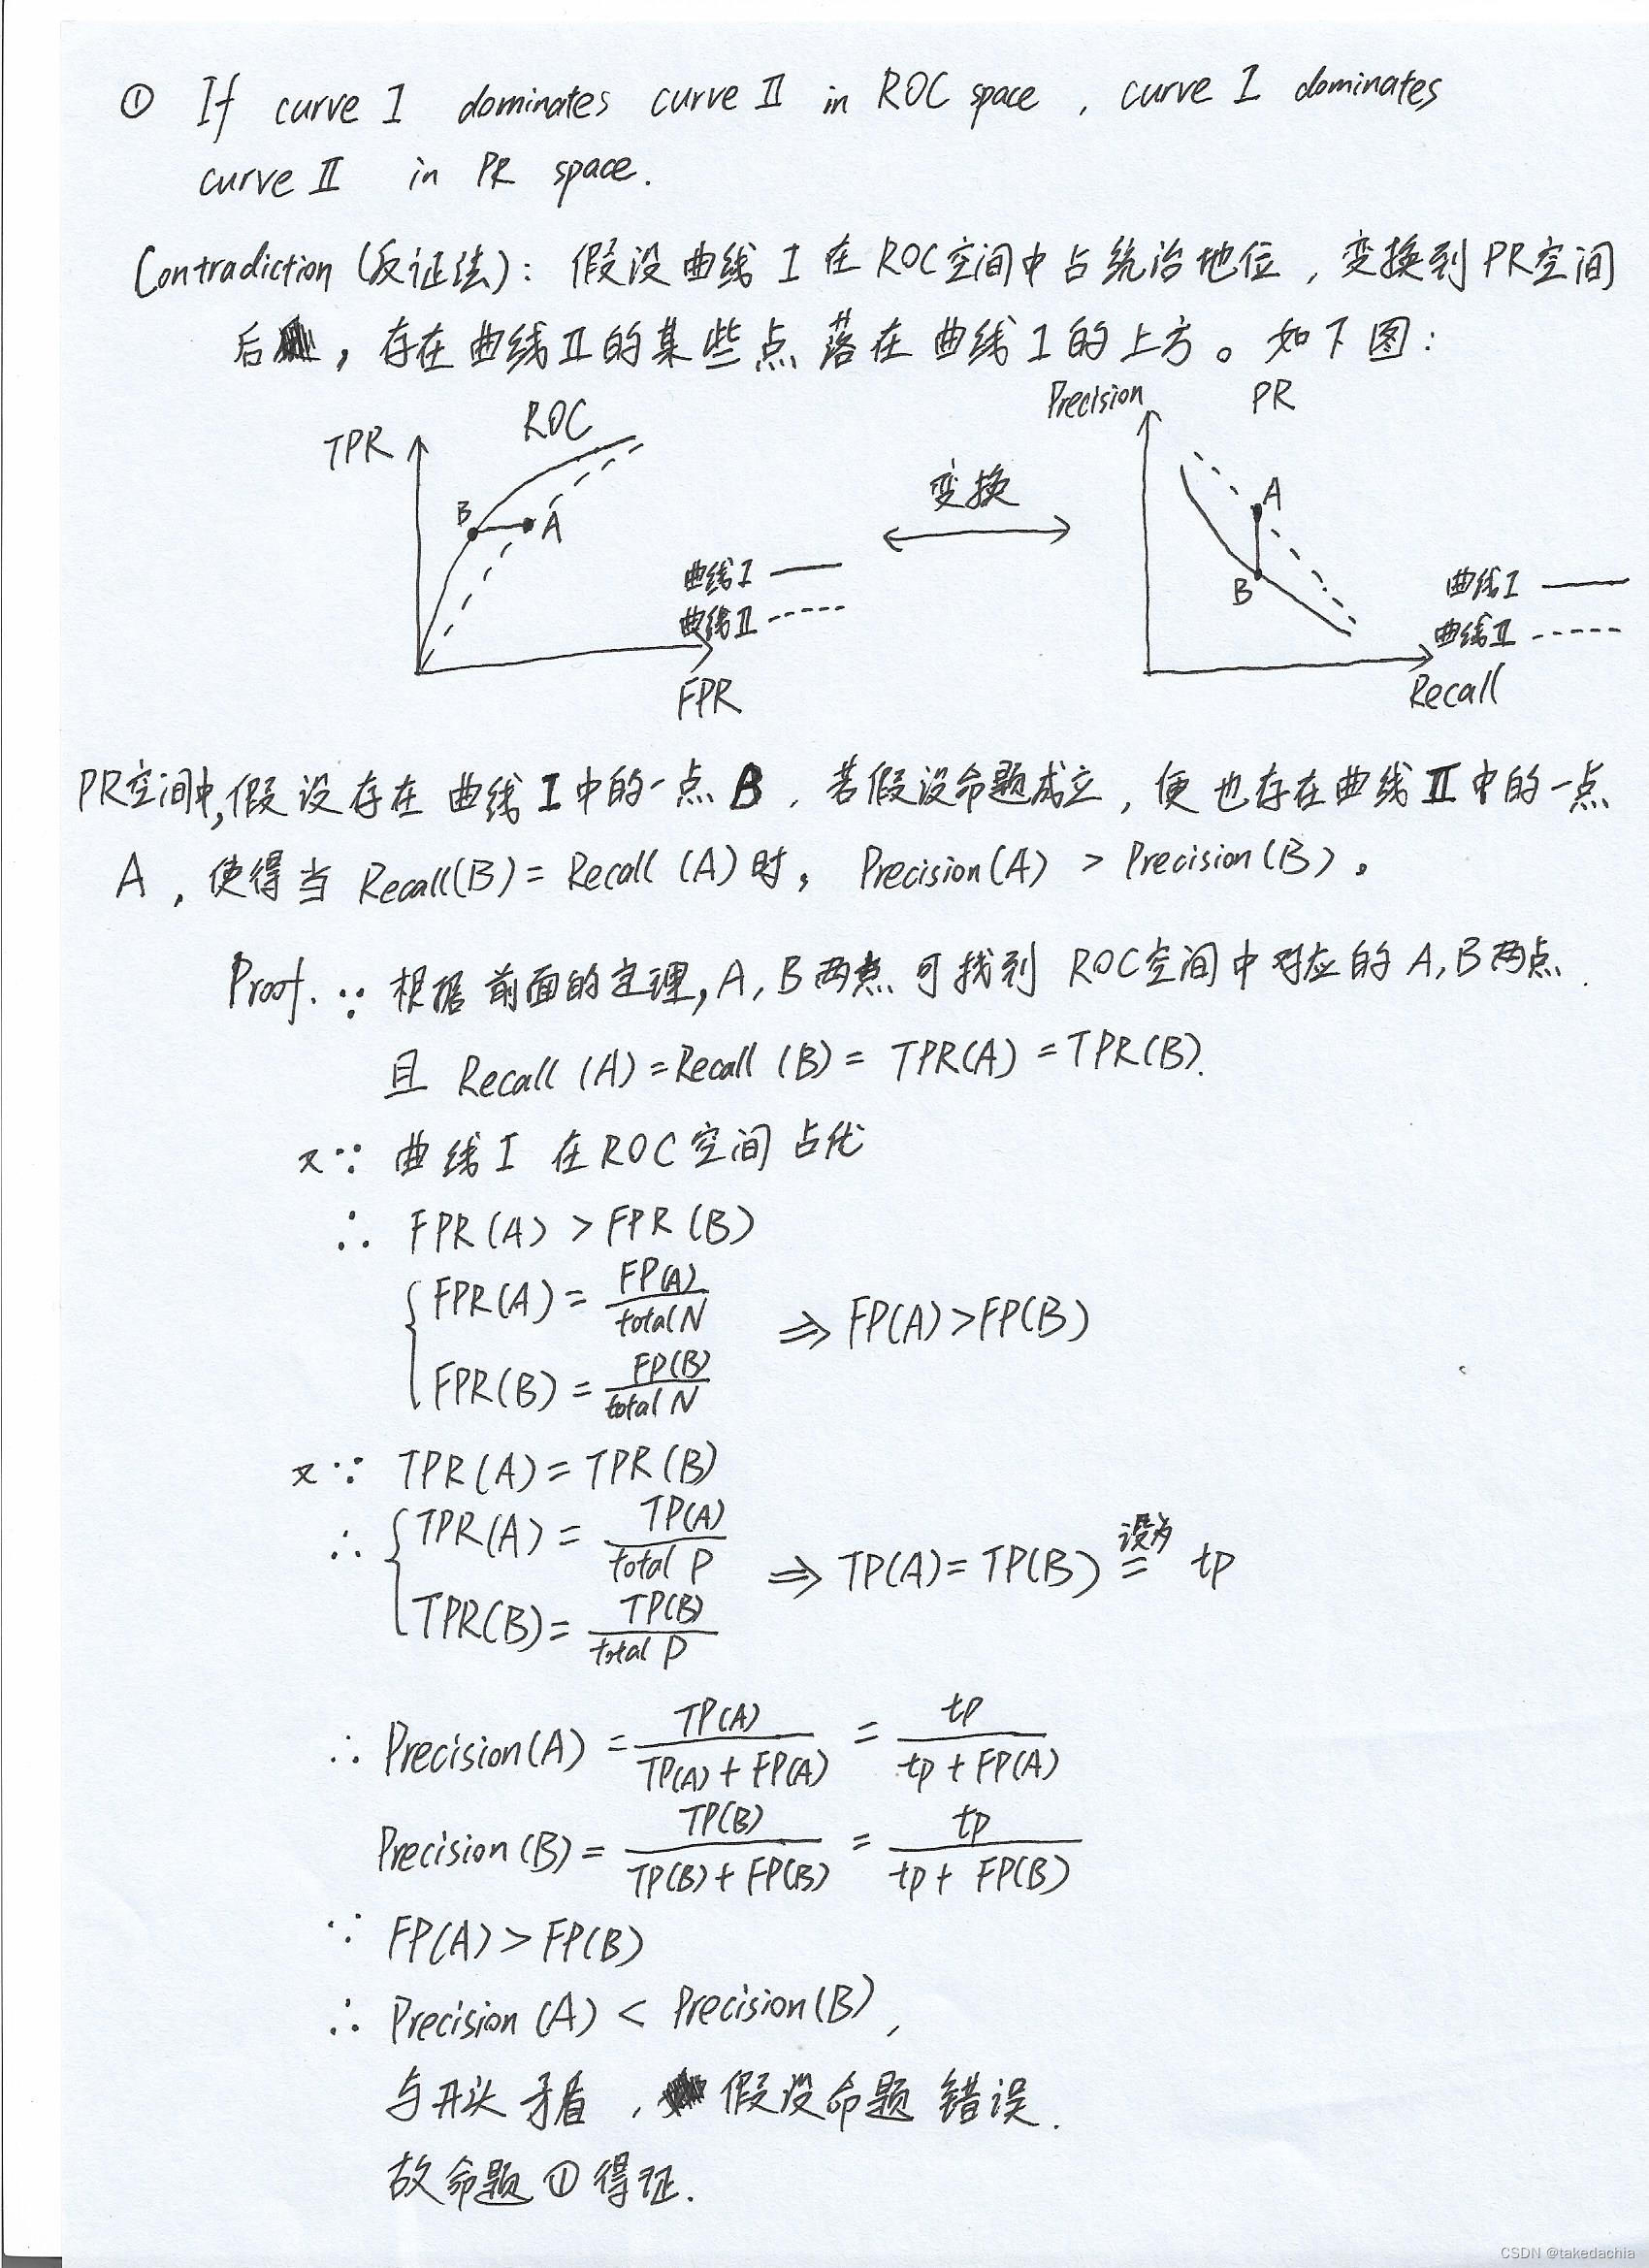 ① If curve I dominates curve II in ROC space , curve I dominates
curve II in PR space.
Contradiction (反证法): 假设曲线 I 在ROC空间中占统治地位，变换到PR空间
后，存在曲线II的某些点落在曲线I的上方。如下图：
ROC
TPR
B
A
曲线I
曲线II
FPR
变换
Precision
PR
A
B
曲线I
曲线II
Recall
PR空间中,假设存在曲线I中的一点B，若假设命题成立，便也存在曲线II中的一点
A，使得当 Recall(B) = Recall (A) 时，Precision(A) > Precision(B)。
Proof. ∵ 根据前面的定理, A, B两点可找到 ROC空间中对应的A, B两点.
且 Recall (A) = Recall (B) = TPR(A) = TPR(B).
又∵ 曲线I 在ROC空间占优
∴ FPR(A) > FPR(B)
{ FPR(A) = FP(A) / total N
FPR(B) = FP(B) / total N ⇒ FP(A) > FP(B)
又∵ TPR(A) = TPR(B)
∴ { TPR(A) = TP(A) / total P
TPR(B) = TP(B) / total P ⇒ TP(A) = TP(B) 设为 = tp
∴ Precision(A) = TP(A) / TP(A) + FP(A) = tp / tp + FP(A)
Precision(B) = TP(B) / TP(B) + FP(B) = tp / tp + FP(B)
∵ FP(A) > FP(B)
∴ Precision (A) < Precision(B),
与开头矛盾，假设命题错误.
故命题①得证.
CSDN @takedachia